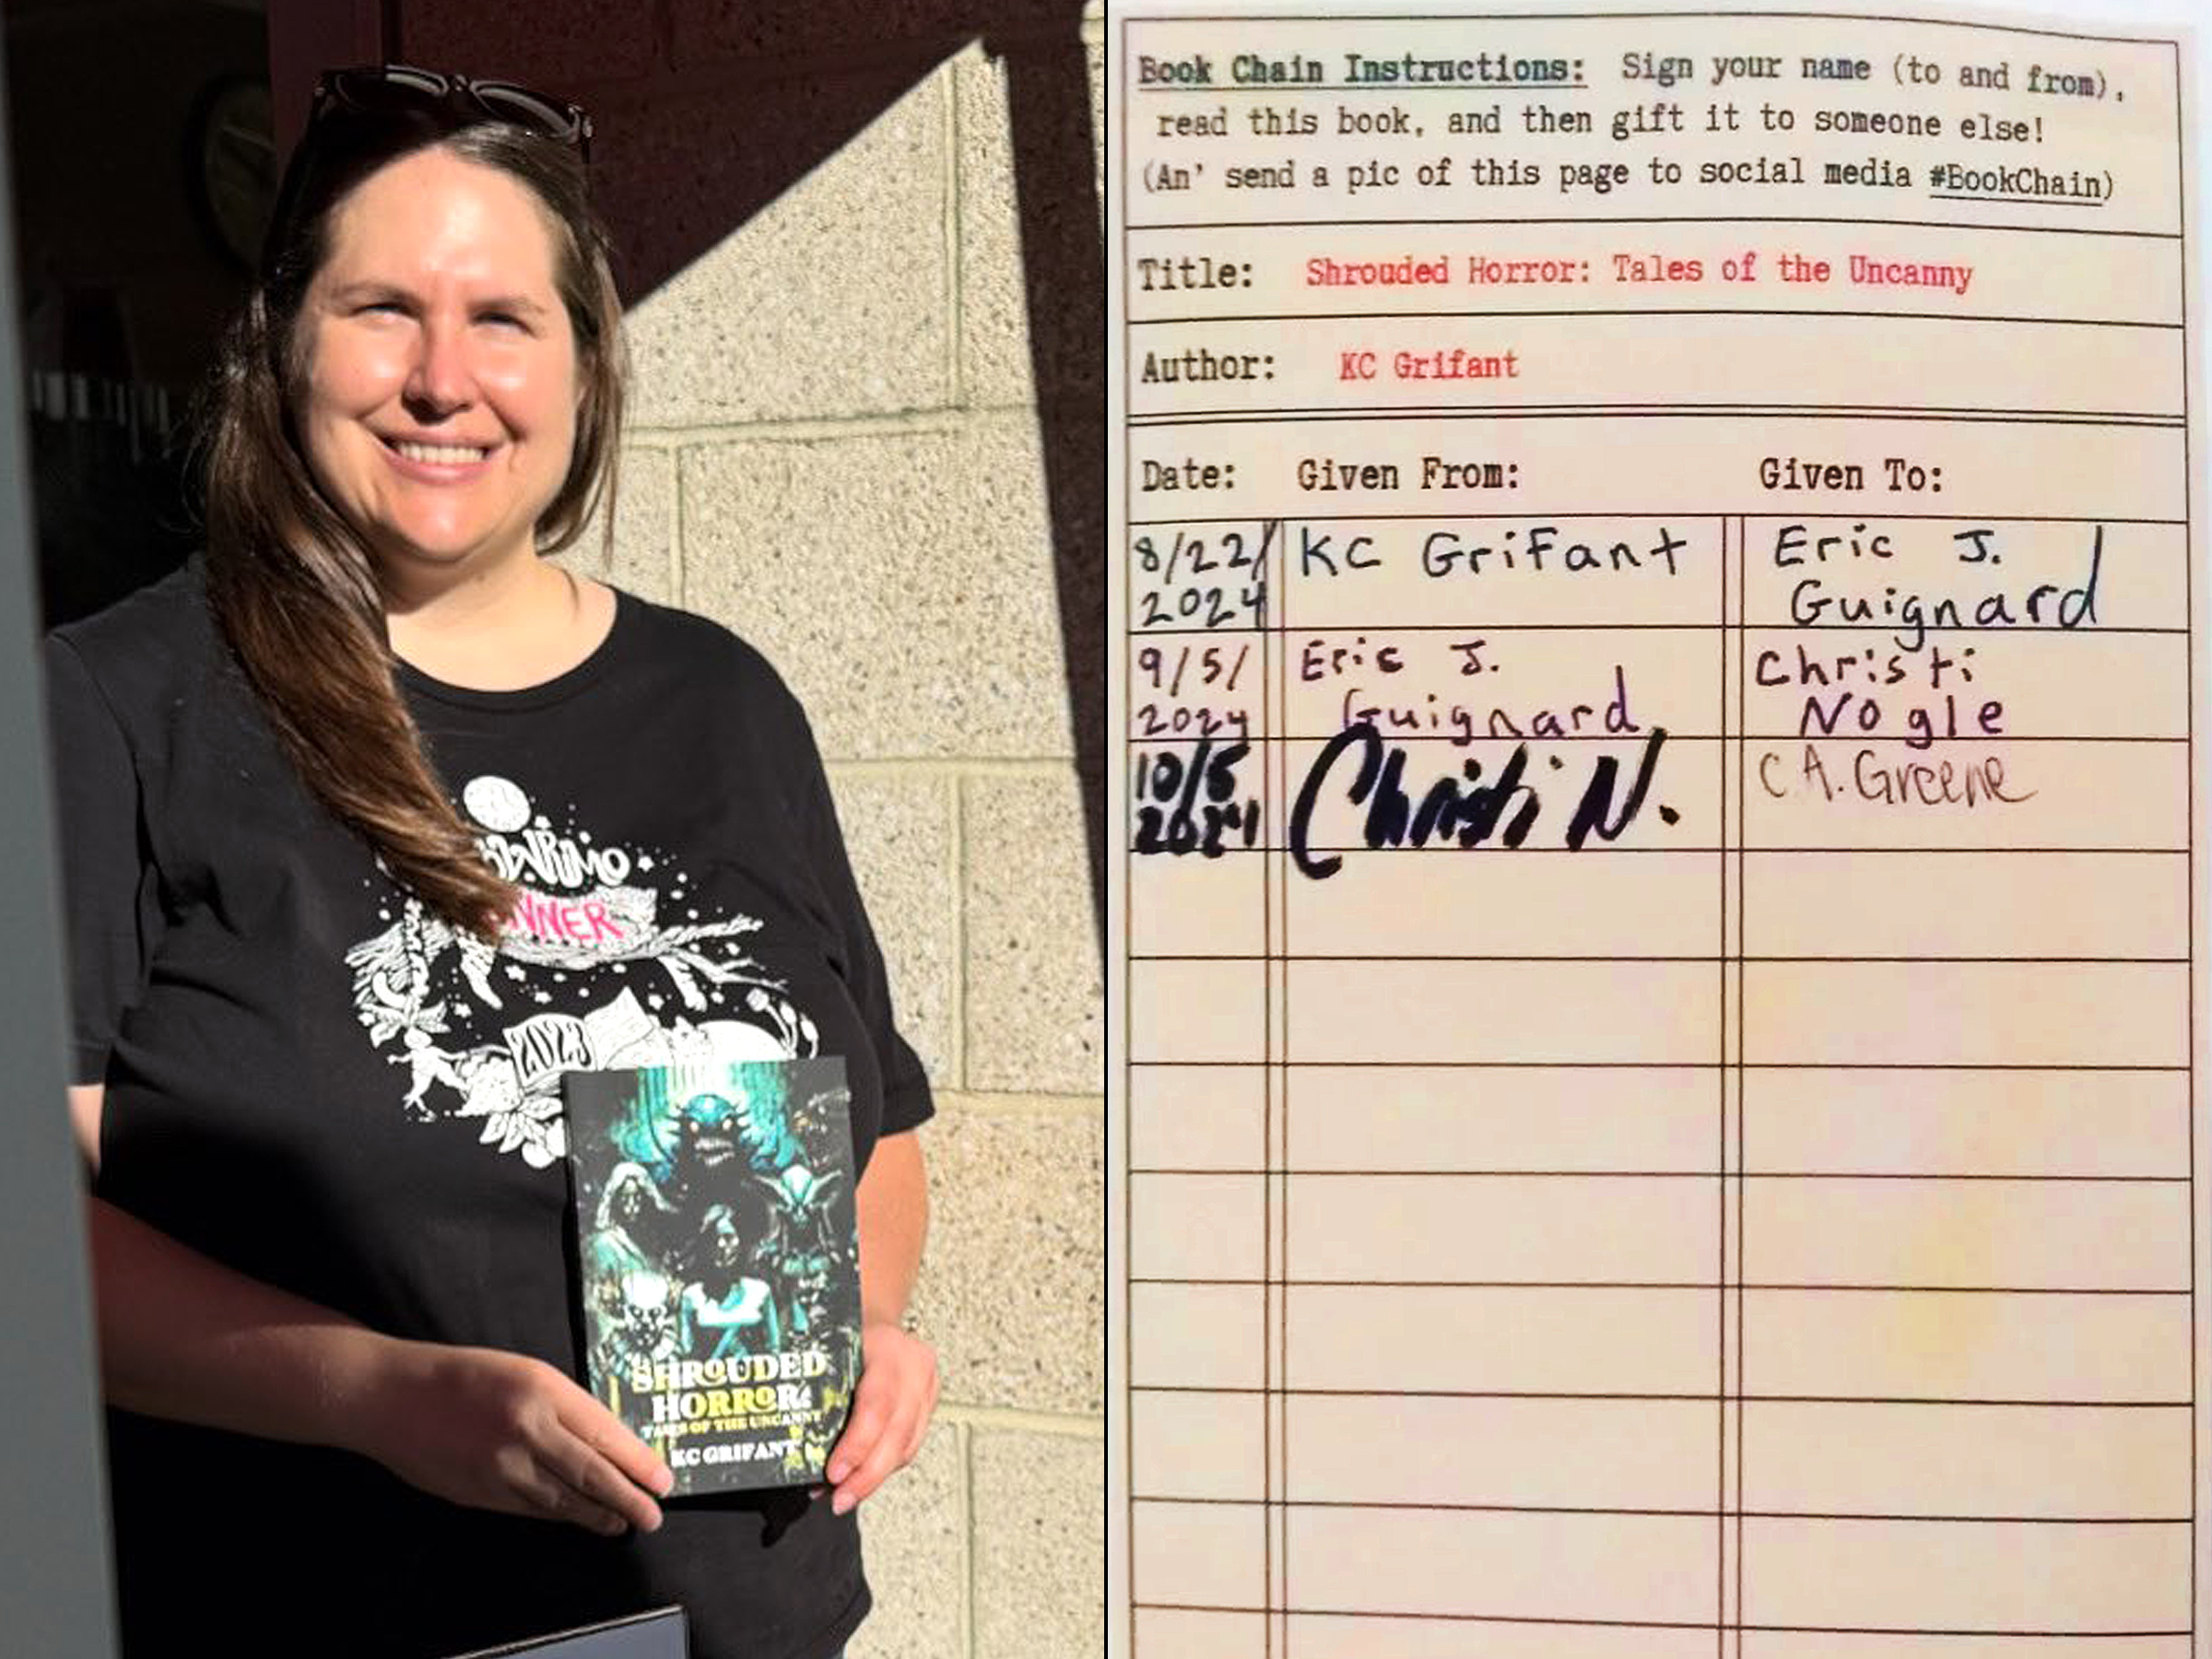 NNER
2023
SHROUDED
HORROR:
TALES OF THE UNCANNY
KC GRIFANT
Book Chain Instructions: Sign your name (to and from),
read this book, and then gift it to someone else!
(An' send a pic of this page to social media #BookChain)
Title: Shrouded Horror: Tales of the Uncanny
Author: KC Grifant
Date: Given From: Given To:
8/22/ KC Grifant Eric J.
2024 Guignard
9/5/ Eric J. Christi
2024 Guignard Nogle
10/5 Christi N. C A. Greene
2024